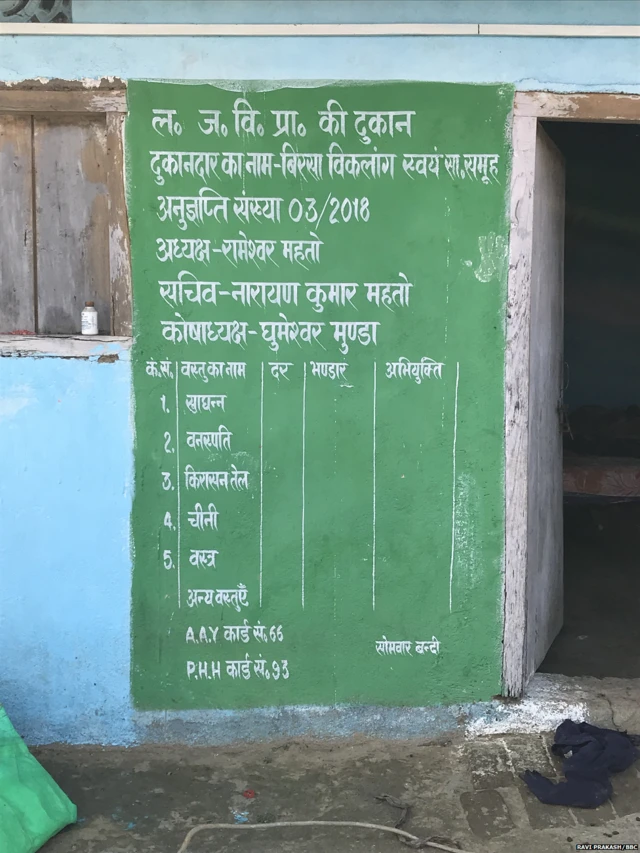 ल॰ ज॰ वि॰ प्रा॰ की दुकान
दुकानदार का नाम-बिरसा विकलांग स्वयं सा॰ समूह
अनुज्ञप्ति संख्या 03/2018
अध्यक्ष-रामेश्वर महतो
सचिव-नारायण कुमार महतो
कोषाध्यक्ष-घुमेश्वर मुण्डा
कं.सं. वस्तु का नाम दर भण्डार अभियुक्ति
1. खाद्यन्न
2. वनस्पति
3. किरासन तेल
4. चीनी
5. वस्त्र
अन्य वस्तुएँ
A.A.Y कार्ड सं॰ 66
सोमवार बन्दी
P.H.H कार्ड सं॰ 93
RAVI PRAKASH/BBC